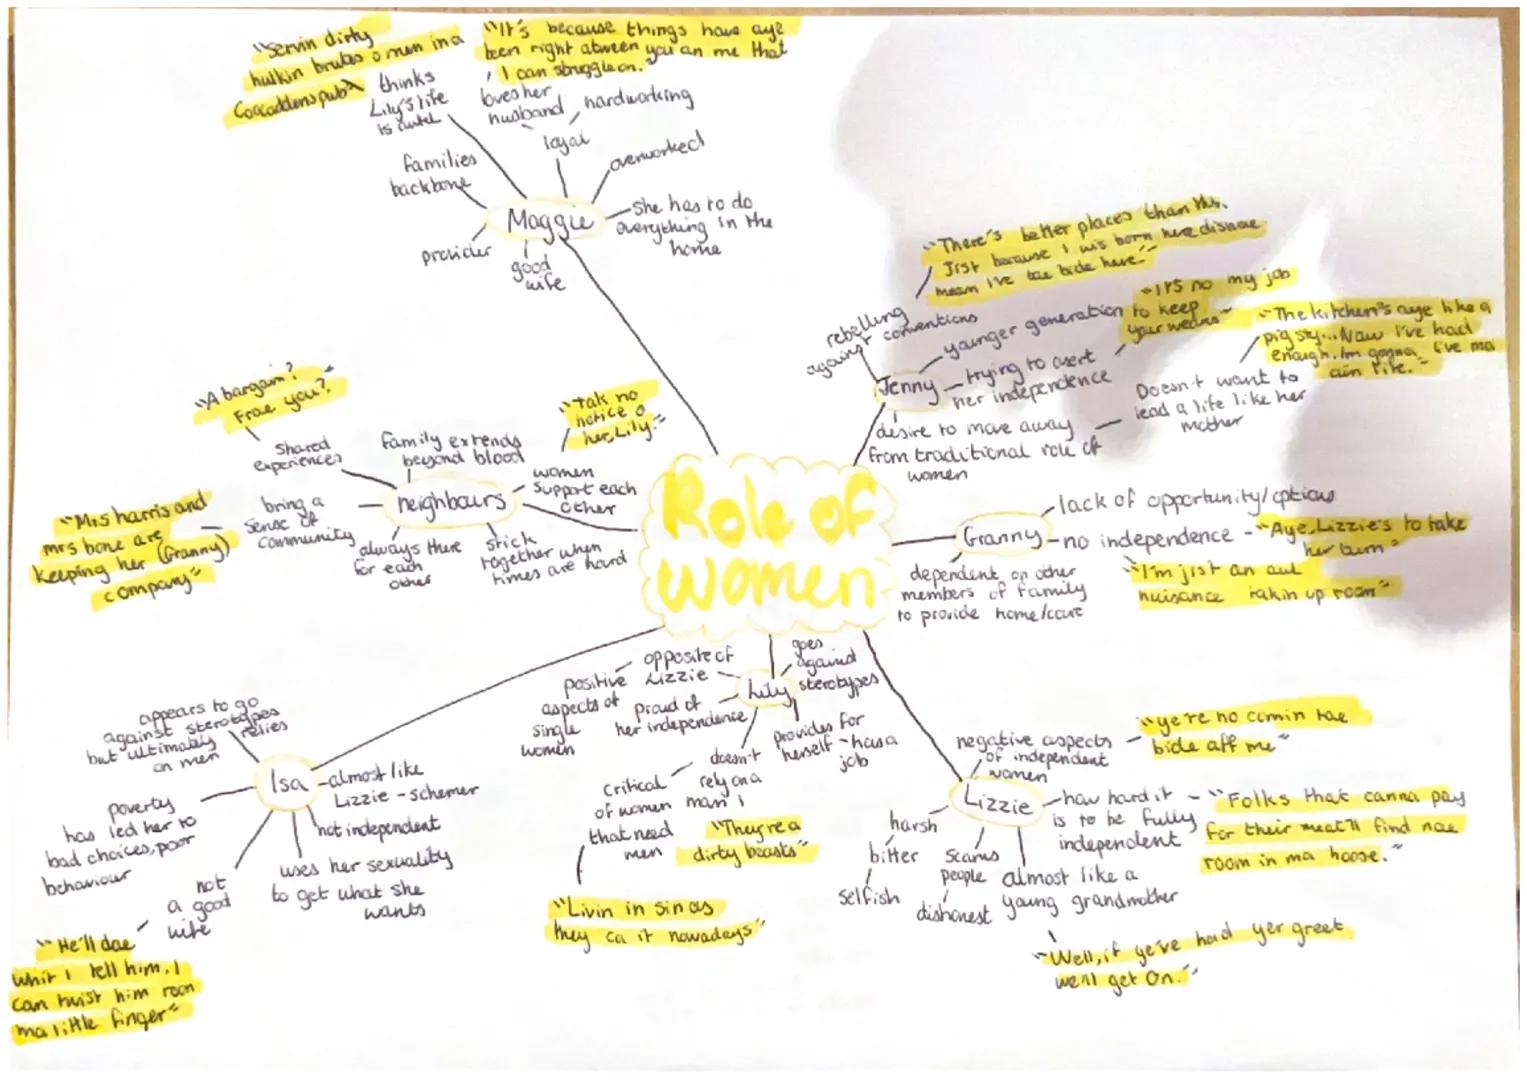 "Servin dirty
hulkin brutes o men in a
Cocaddens pub"
thinks
Lily's life
is awful
"It's because things have aye
been right atween you an me that
I can struggle on."
loves her
husband
hardworking
loyal
overworked
families
backbone
Maggie
she has to do
everything in the
home
provider
good
wife
"There's better places than this.
Jist because I wis born here disnae
mean I've tae bide here."
rebelling
against conventions
younger generation
"It's no my job
to keep
your weans"
"The kitchen's aye like a
pig sty... Naw I've had
enough. Im gonna live ma
ain life."
Jenny
trying to asert
her independence
Doesn't want to
lead a life like her
mother
desire to move away
from traditional role of
women
"A bargain?
Frae you?"
shared
experiences
family extends
beyond blood
"Tak no
notice o
her, Lily."
women
support each
other
neighbours
bring a
sense of
community
"Mrs harris and
mrs bone are
keeping her (Granny)
company"
always there
for each
other
stick
together when
times are hard
Role of
women
Granny
lack of opportunity/options
no independence - "Aye, Lizzie's to take
her turn"
dependent on other
members of family
to provide home/care
"I'm jist an aul
nuisance takin up room"
opposite of
Lizzie
goes
against
sterotypes
Lily
positive
aspects of
single
women
proud of
her independence
provides for
herself - has a
job
doesn't
rely on a
man
critical
of women
that need
men
"They're a
dirty beasts"
"Livin in sin as
they ca it nowadays"
appears to go
against sterotypes
but ultimately relies
on men
Isa
almost like
Lizzie - schemer
not independent
poverty
has led her to
bad choices, poor
behaviour
uses her sexuality
to get what she
wants
not
a good
wife
"He'll dae
whit I tell him. I
can twist him roon
ma little finger"
negative aspects
of independent
women
"ye're no comin tae
bide aff me"
Lizzie
how hard it
is to be fully
independent
"Folks that canna pay
for their meat'll find nae
room in ma hoose."
harsh
bitter
selfish
scams
people
dishonest
almost like a
young grandmother
"Well, if ye've had yer greet
we'll get on."